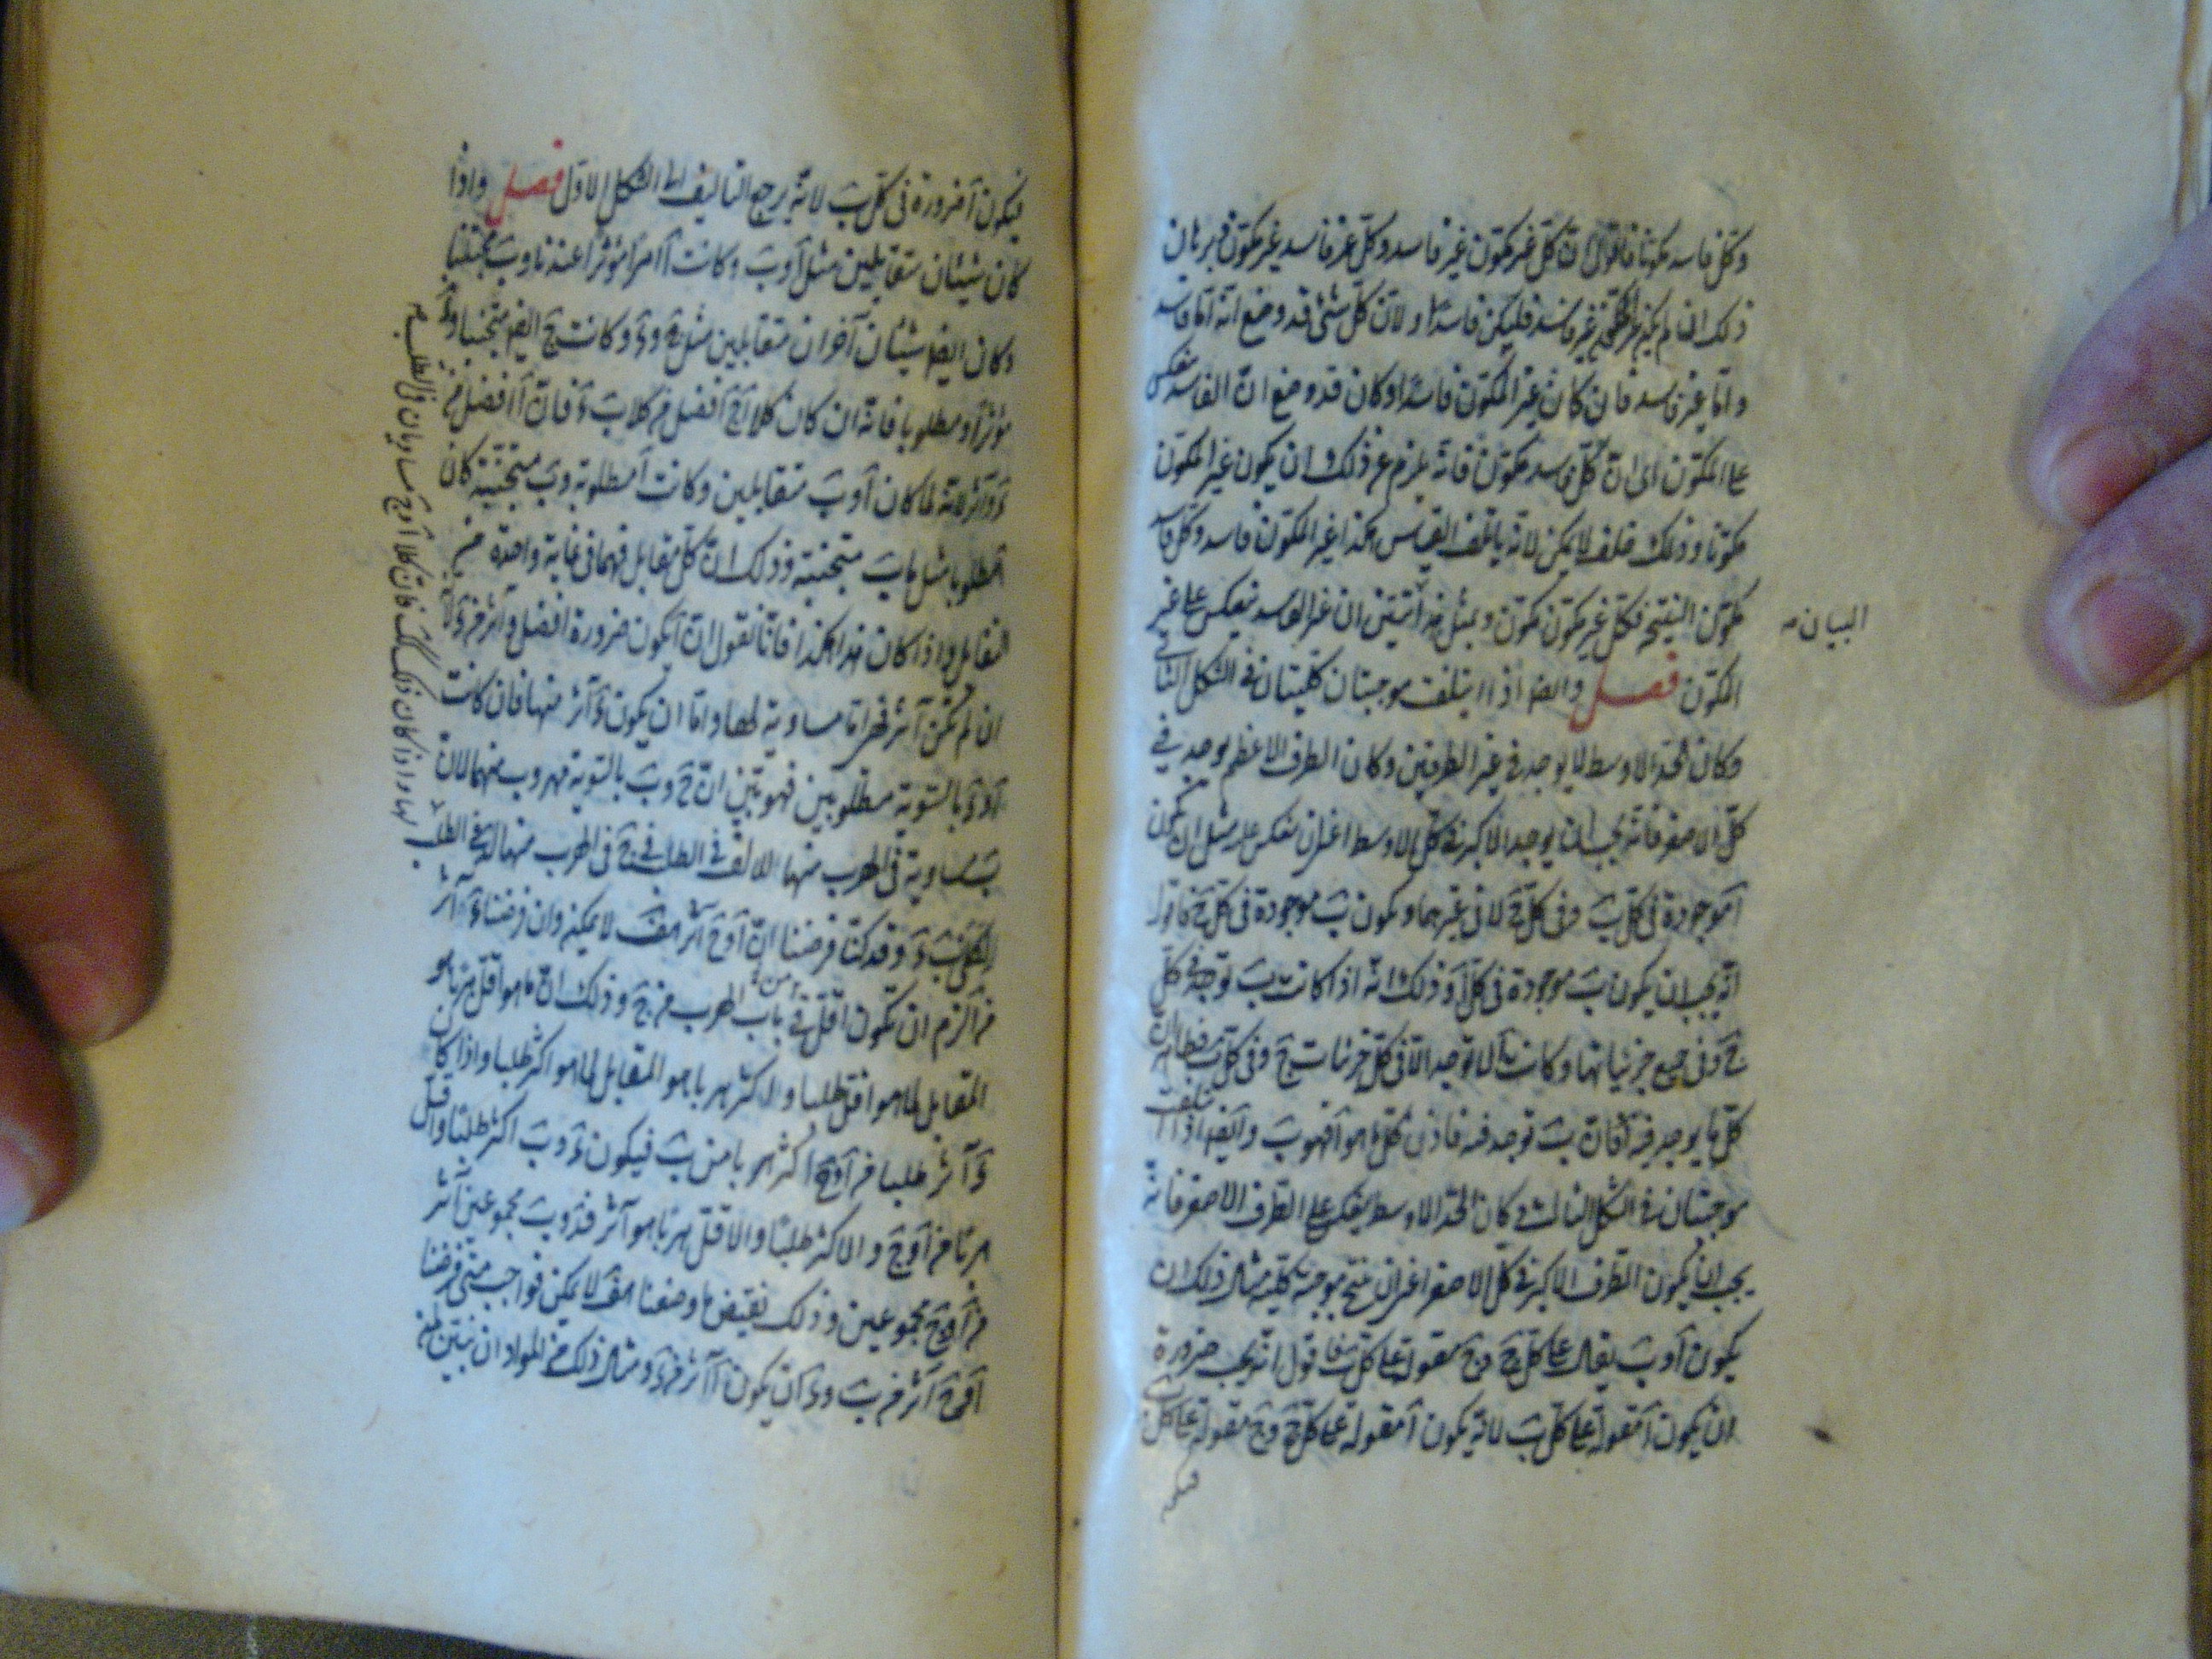 وكل فاسد مكونا فاقول ان كل غير مكون غير فاسد وكل غير فاسد غير مكون فبرهان
ذلك ان لم يكن غير المكون غير فاسد فليكن فاسدا ولان كل شئ قد وضع انه اما فاسد
واما غير فاسد فان كان غير المكون فاسدا وكان قد وضع ان الفاسد ينعكس
على المكون اى ان كل فاسد مكون فانه يلزم عن ذلك ان يكون غير المكون
مكونا وذلك خلف لا يمكن لانه ياتلف القياس هكذا غير المكون فاسد وكل فاسد
مكون النتيجة فكل غير مكون مكون وبمثل هذا يتبين ان غير الفاسد ينعكس على غير
البيان
المكون فصل وايضا اذا ايتلفت موجبتان كليتان فى الشكل الثانى
وكان الحد الاوسط لا يوجد فى غير الطرفين وكان الطرف الاعظم يوجد فى
كل الاصغر فانه يجب ان يوجد الاكبر فى كل الاوسط اعنى ان ينعكس عليه مثل ان يكون
آ موجودة فى كل ب وفى كل ج لا فى غيرهما ويكون ب موجودة فى كل ج فاقول
انه يجب ان يكون ب موجودة فى كل آ وذلك انه اذا كانت ب توجد فى كل
ج وفى جميع جزئياتها وكانت آ لا توجد الا فى كل جزئيات ج وفى كل ب فظاهر ان
كل ما يوجد فيه آ فان ب توجد فيه فاذن كل ما هو آ فهو ب وايضا اذا ايتلفت
موجبتان فى الشكل الثالث وكان الحد الاوسط ينعكس على الطرف الاصغر فانه
يجب ان يكون الطرف الاكبر فى كل الاصغر اعنى ان ينتج موجبة كلية مثال ذلك ان
يكون آ و ب يقال على كل ج و ج مقول على كل ب فاقول انه يجب ضرورة
ان يكون آ مقولة على كل ب لانه يكون آ مقولة على كل ج و ج مقولة على كل ب
فيكون آ ضرورة فى كل ب لانه يرجع التاليف الى الشكل الاول فصل واذا
كان شيئان متقابلين مثل آ و ب وكانت آ امرا مؤثرا عندنا و ب مجتنبا
وكان ايضا شيئان آخران متقابلين مثل ج و د وكانت ج ايضا متجنبا و د
مؤثرا ومطلوبا فانه ان كان كلا آ ج افضل من كلا ب د فان آ افضل من
د وآثر لانه لما كان آ و ب متقابلين وكانت آ مطلوبة و ب متجنبة كان
آ مطلوبا مثل ما ب متجنبة وذلك ان كل متقابل فهما فى غاية واحدة من
التقابل واذا كان هذا هكذا فانا نقول ان آ يكون ضرورة افضل وآثر من د لانه
ان لم تكن آثر فهى اما مساوية لها واما ان يكون د آثر منها فان كانت
آ و د بالسوية مطلوبين فهو بين ان ج و ب بالسوية مهروب منهما لان
ب مساوية فى الهرب منها للالف فى الطلب و ج فى الهرب منها لد فى الطلب
لها واذا كان ذلك كذلك فان كلا آ و ج مساويان فى الطلب
لكلى ب د وقد كنا فرضنا ان آ و ج آثر هف لا يمكن وان فرضنا د آثر
من آ لزم ان تكون ب اقل فى باب الهرب من ج وذلك ان ما هو اقل هربا هو
المقابل لما هو اقل طلبا والاكثر هربا هو المقابل لما هو اكثر طلبا واذا كان
د آثر طلبا من آ و ج اكثر هربا من ب فيكون د و ب اكثر طلبا واقل
هربا من آ و ج والاكثر طلبا والاقل هربا هو آثر فد و ب مجموعين آثر
من آ و ج مجموعين وذلك نقيض ما وضعنا هف لا يمكن فواجب متى فرضنا
آ و ج آثر من ب و د ان يكون آ آثر من د ومثال ذلك من المواد ان